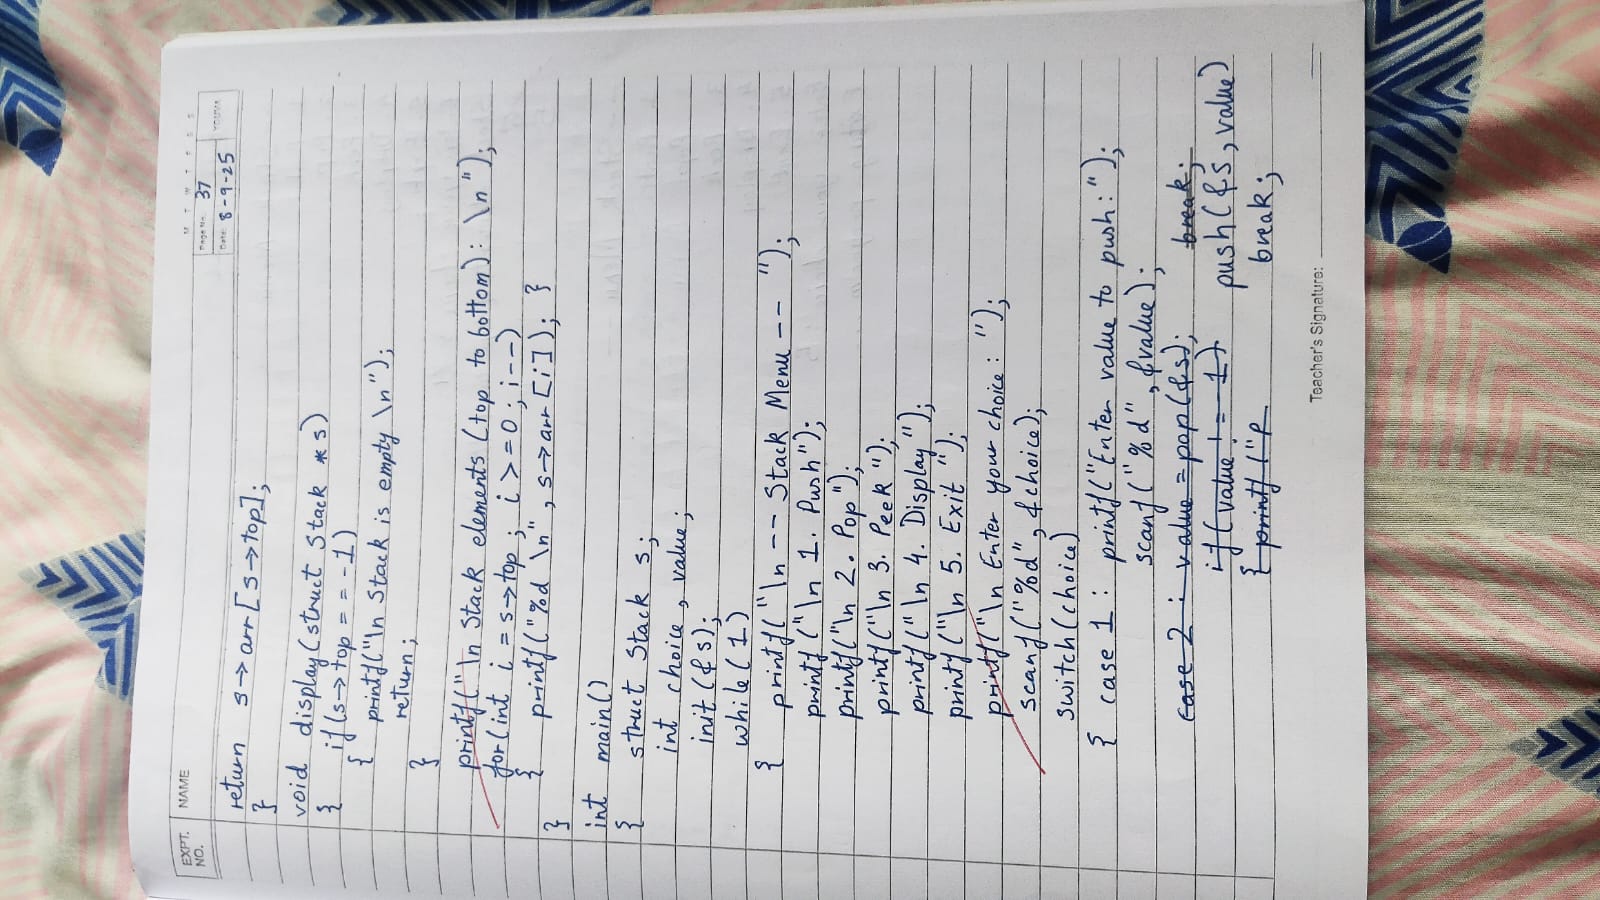 EXPT. NO.
NAME
M T W T F S S
Page No. 37
Date: 8-9-25
YOUVA
return s→arr[s→top];
}
void display(struct Stack *s)
{ if(s→top == -1)
{ printf("\n Stack is empty \n");
return;
}
printf("\n Stack elements (top to bottom): \n");
for(int i = s→top ; i >=0 ; i--)
{ printf("%d \n", s→arr[i]); }
}
int main()
{ struct Stack s;
int choice, value;
init(&s);
while(1)
{ printf("\n -- Stack Menu -- ");
printf("\n 1. Push");
printf("\n 2. Pop");
printf("\n 3. Peek ");
printf("\n 4. Display");
printf("\n 5. Exit ");
printf("\n Enter your choice: ");
scanf("%d", &choice);
switch(choice)
{ case 1 : printf("Enter value to push:");
scanf("%d", &value);
case 2 : value = pop(&s); break;
if(value != 1) push(&s, value)
{ printf("P break;
Teacher's Signature: